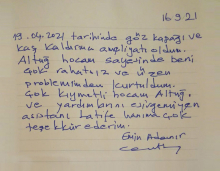 16.9.21
19.04.2021 tarihinde göz kapağı ve
kaş kaldırma ameliyatı oldum.
Altuğ hocam sayesinde beni
çok rahatsız ve üzen
problemimden kurtuldum.
Çok kıymetli hocam Altuğ,
ve yardımlarını esirgemeyen
asistanı Latife hanıma çok
teşekkür ederim.
Emin